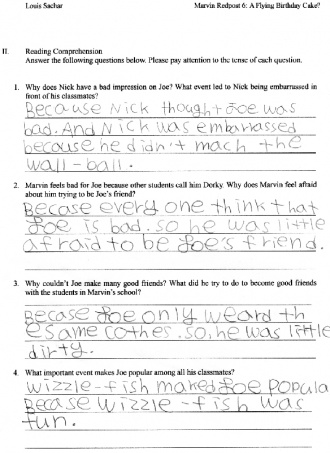 Louis Sachar Marvin Redpost 6: A Flying Birthday Cake?
II. Reading Comprehension
Answer the following questions below. Please pay attention to the tense of each question.
1. Why does Nick have a bad impression on Joe? What event led to Nick being embarrassed in
front of his classmates?
Because Nick thought Joe was
bad. And Nick was embarrassed
because he didn't mach the
wall-ball.
2. Marvin feels bad for Joe because other students call him Dorky. Why does Marvin feel afraid
about him trying to be Joe's friend?
Becase every one think that
Joe is bad. so he was little
afraid to be Joe's friend.
3. Why couldn't Joe make many good friends? What did he try to do to become good friends
with the students in Marvin's school?
Becase Joe only weard th
e same cothes. so, he was little
dirty.
4. What important event makes Joe popular among all his classmates?
Wizzle-fish maked Joe popula
Becase Wizzle-fish was
fun.